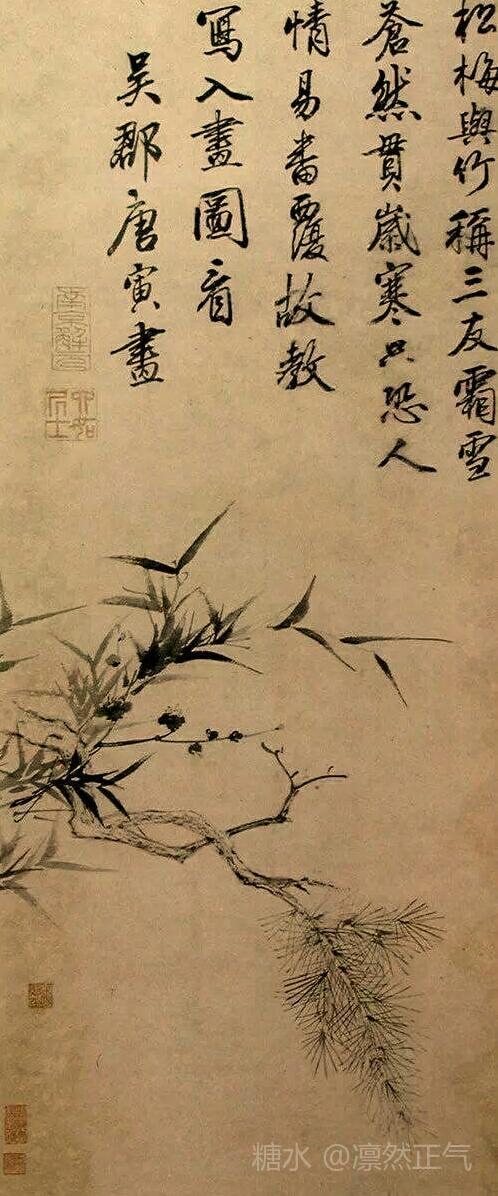 松梅與竹稱三友霜雪
蒼然貫歲寒只恐人
情易番覆故教
寫入畫圖看
吳郡唐寅畫
南京解元
六如居士
糖水 @凛然正气